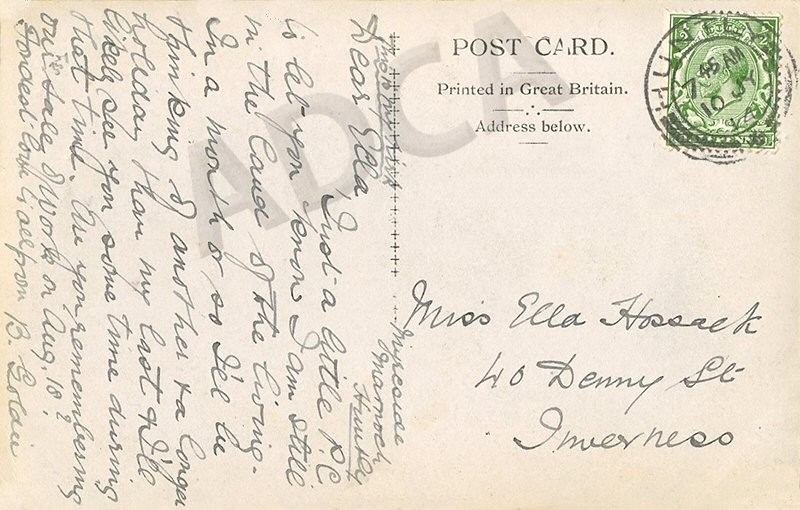 Myreside
Marnoch
Huntly
Dear Ella
Just a little P.C.
to let you know I am still
in the land of the living.
In a month or so I'll be
thinking of another & a longer
holiday than my last & I'll
likely see you some time during
that time. Are you remembering
our sale of Work on Aug. 18?
Fondest love to all from B.
POST CARD.
Printed in Great Britain.
Address below.
7 45 AM
10 JY
Miss Ella Hossack
40 Denny St
Inverness
ADCA